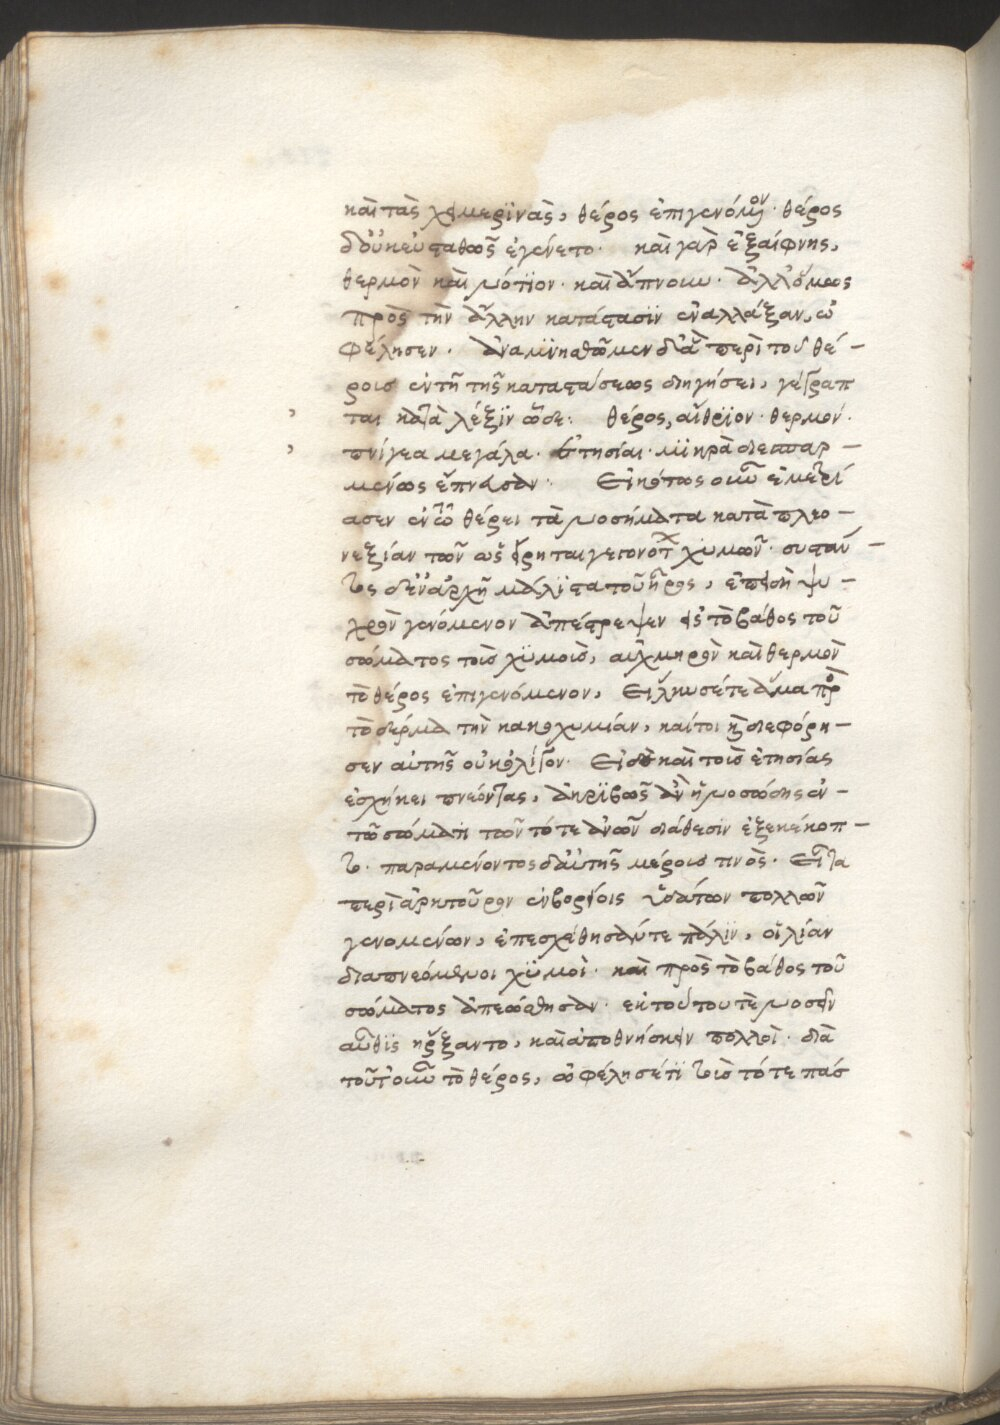 καὶ τὰς χειμερϊνὰς, θέρος ἐπιγενόμενον· θέρος
δ' οὐκ εὐσταθῶς ἐγένετο· καὶ γὰρ ἐξαίφνης,
θερμὸν καὶ νότϊον· καὶ ἄπνοιον· ἀλλ' ὅμως
πρὸς τὴν ἄλλην κατάστασϊν ἐναλλάξαν, ὠ
φέλησεν· ἀναμϊνησθῶμεν δὲ ἃ περὶ τοῦ θέ-
ρους ἐν τῆ τῆς καταστάσεως διηγήσει, γέγραπ
ται κατὰ λέξϊν ὧδε· θέρος, αἴθρϊον· θερμόν·
πνίγεα μεγάλα· ἐτησίαι· μϊκρὰ διεσπαρ-
μένως ἔπνευσαν· Εἰκότως οὖν ἐμετρί
ασεν ἐν τῶ θέρει τὰ νοσήματα κατὰ πλεο-
νεξίαν τῶν ὡς εἴρηται γεγονότων χϋμῶν· συστάν-
τες δ' ἐν ἀρχῆ μάλϊστα τοῦ ἦρος, ἐπειδὴ ψυ-
χρὸν γενόμενον ἀπέστρεψεν εἰς τὸ βάθος τοῦ
σώματος τοὺς χϋμοὺς, αὐχμηρὸν καὶ θερμὸν
τὸ θέρος ἐπιγενόμενον, εἵλκυσέ τε ἅμα πρὸς
τὸ δέρμα τὴν κακοχυμίαν, καίτοι καὶ διεφόρη-
σεν αὐτῆς οὐκ ὀλίγον· Εἰ δὲ καὶ τοὺς ἐτησίας
ἐσχήκει πνέοντας, ἀκρϊβῶς ἂν ἡ νοσώδης ἐν
τῶ σώματι τῶν τότε ἀνθρώπων διάθεσϊν ἐξεκέκοπ-
το· παραμένοντος δ' αὐτῆς μέρους τινὸς· Εἶτα
περὶ ἀρκτοῦρον ἐν βορείοις ὑδάτων πολλῶν
γενομένων, ἐπεσχέθησάν τε πάλϊν, οἱ λίαν
διαπνεόμενοι χϋμοὶ· καὶ πρὸς τὸ βάθος τοῦ
σώματος ἀπεώσθησαν· ἐκ τούτου τε νοσεῖν
αὖθϊς ἤρξαντο, καὶ ἀποθνήσκειν πολλοὶ· διὰ
τοῦτ' οὖν τὸ θέρος, ὠφέλησέ τϊ τοὺς τότε πάσ